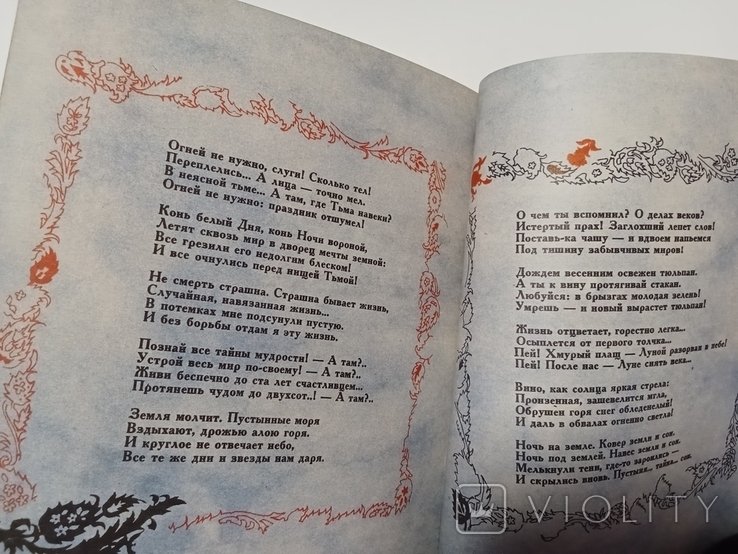 Огней не нужно, слуги! Сколько тел!
Переплелись... А лица — точно мел.
В неясной тьме... А там, где Тьма навеки?
Огней не нужно: праздник отшумел!
Конь белый Дня, конь Ночи вороной,
Летят сквозь мир в дворец мечты земной:
Все грезили его недолгим блеском!
И все очнулись перед нищей Тьмой!
Не смерть страшна. Страшна бывает жизнь,
Случайная, навязанная жизнь...
В потемках мне подсунули пустую.
И без борьбы отдам я эту жизнь.
Познай все тайны мудрости! — А там?..
Устрой весь мир по-своему! — А там?..
Живи беспечно до ста лет счастливцем...
Протянешь чудом до двухсот..! — А там?..
Земля молчит. Пустынные моря
Вздыхают, дрожью алою горя.
И круглое не отвечает небо,
Все те же дни и звезды нам даря.
О чем ты вспомнил? О делах веков?
Истертый прах! Заглохший лепет слов!
Поставь-ка чашу — и вдвоем напьемся
Под тишину забывчивых миров!
Дождем весенним освежен тюльпан.
А ты к вину протягивай стакан.
Любуйся: в брызгах молодая зелень!
Умрешь — и новый вырастет тюльпан!
Жизнь отцветает, горестно легка...
Осыплется от первого толчка...
Пей! Хмурый плащ — Луной разорван в небе!
Пей! После нас — Луне сиять века...
Вино, как солнца яркая стрела:
Пронзенная, зашевелится мгла,
Обрушен горя снег обледенелый!
И даль в обвалах огненно светла!
Ночь на земле. Ковер земли и сон.
Ночь под землей. Навес земли и сон.
Мелькнули тени, где-то зароились —
И скрылись вновь. Пустыня... тайна... сон.
VIOLITY